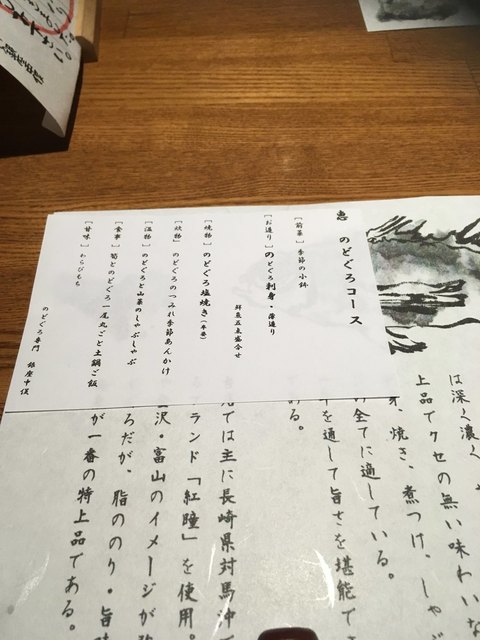 恵 のどぐろコース
[前菜] 季節の小鉢
[お造り] のどぐろ刺身・薄造り
鮮魚五点盛合せ
[焼物] のどぐろ塩焼き(半身)
[炊物] のどぐろのつみれ季節あんかけ
[温物] のどぐろと山菜のしゃぶしゃぶ
[食事] 筍とのどぐろ一尾丸ごと土鍋ご飯
[甘味] わらびもち
のどぐろ専門 銀座中俣
は深く濃く
上品でクセの無い味わいな
、焼き、煮つけ、しゃぶ
の全てに適している。
を通して旨さを堪能でき
る。
では主に長崎県対馬沖で
ランド「紅瞳」を使用。
沢・富山のイメージが強
ろだが、脂ののり・旨味
が一番の特上品である。